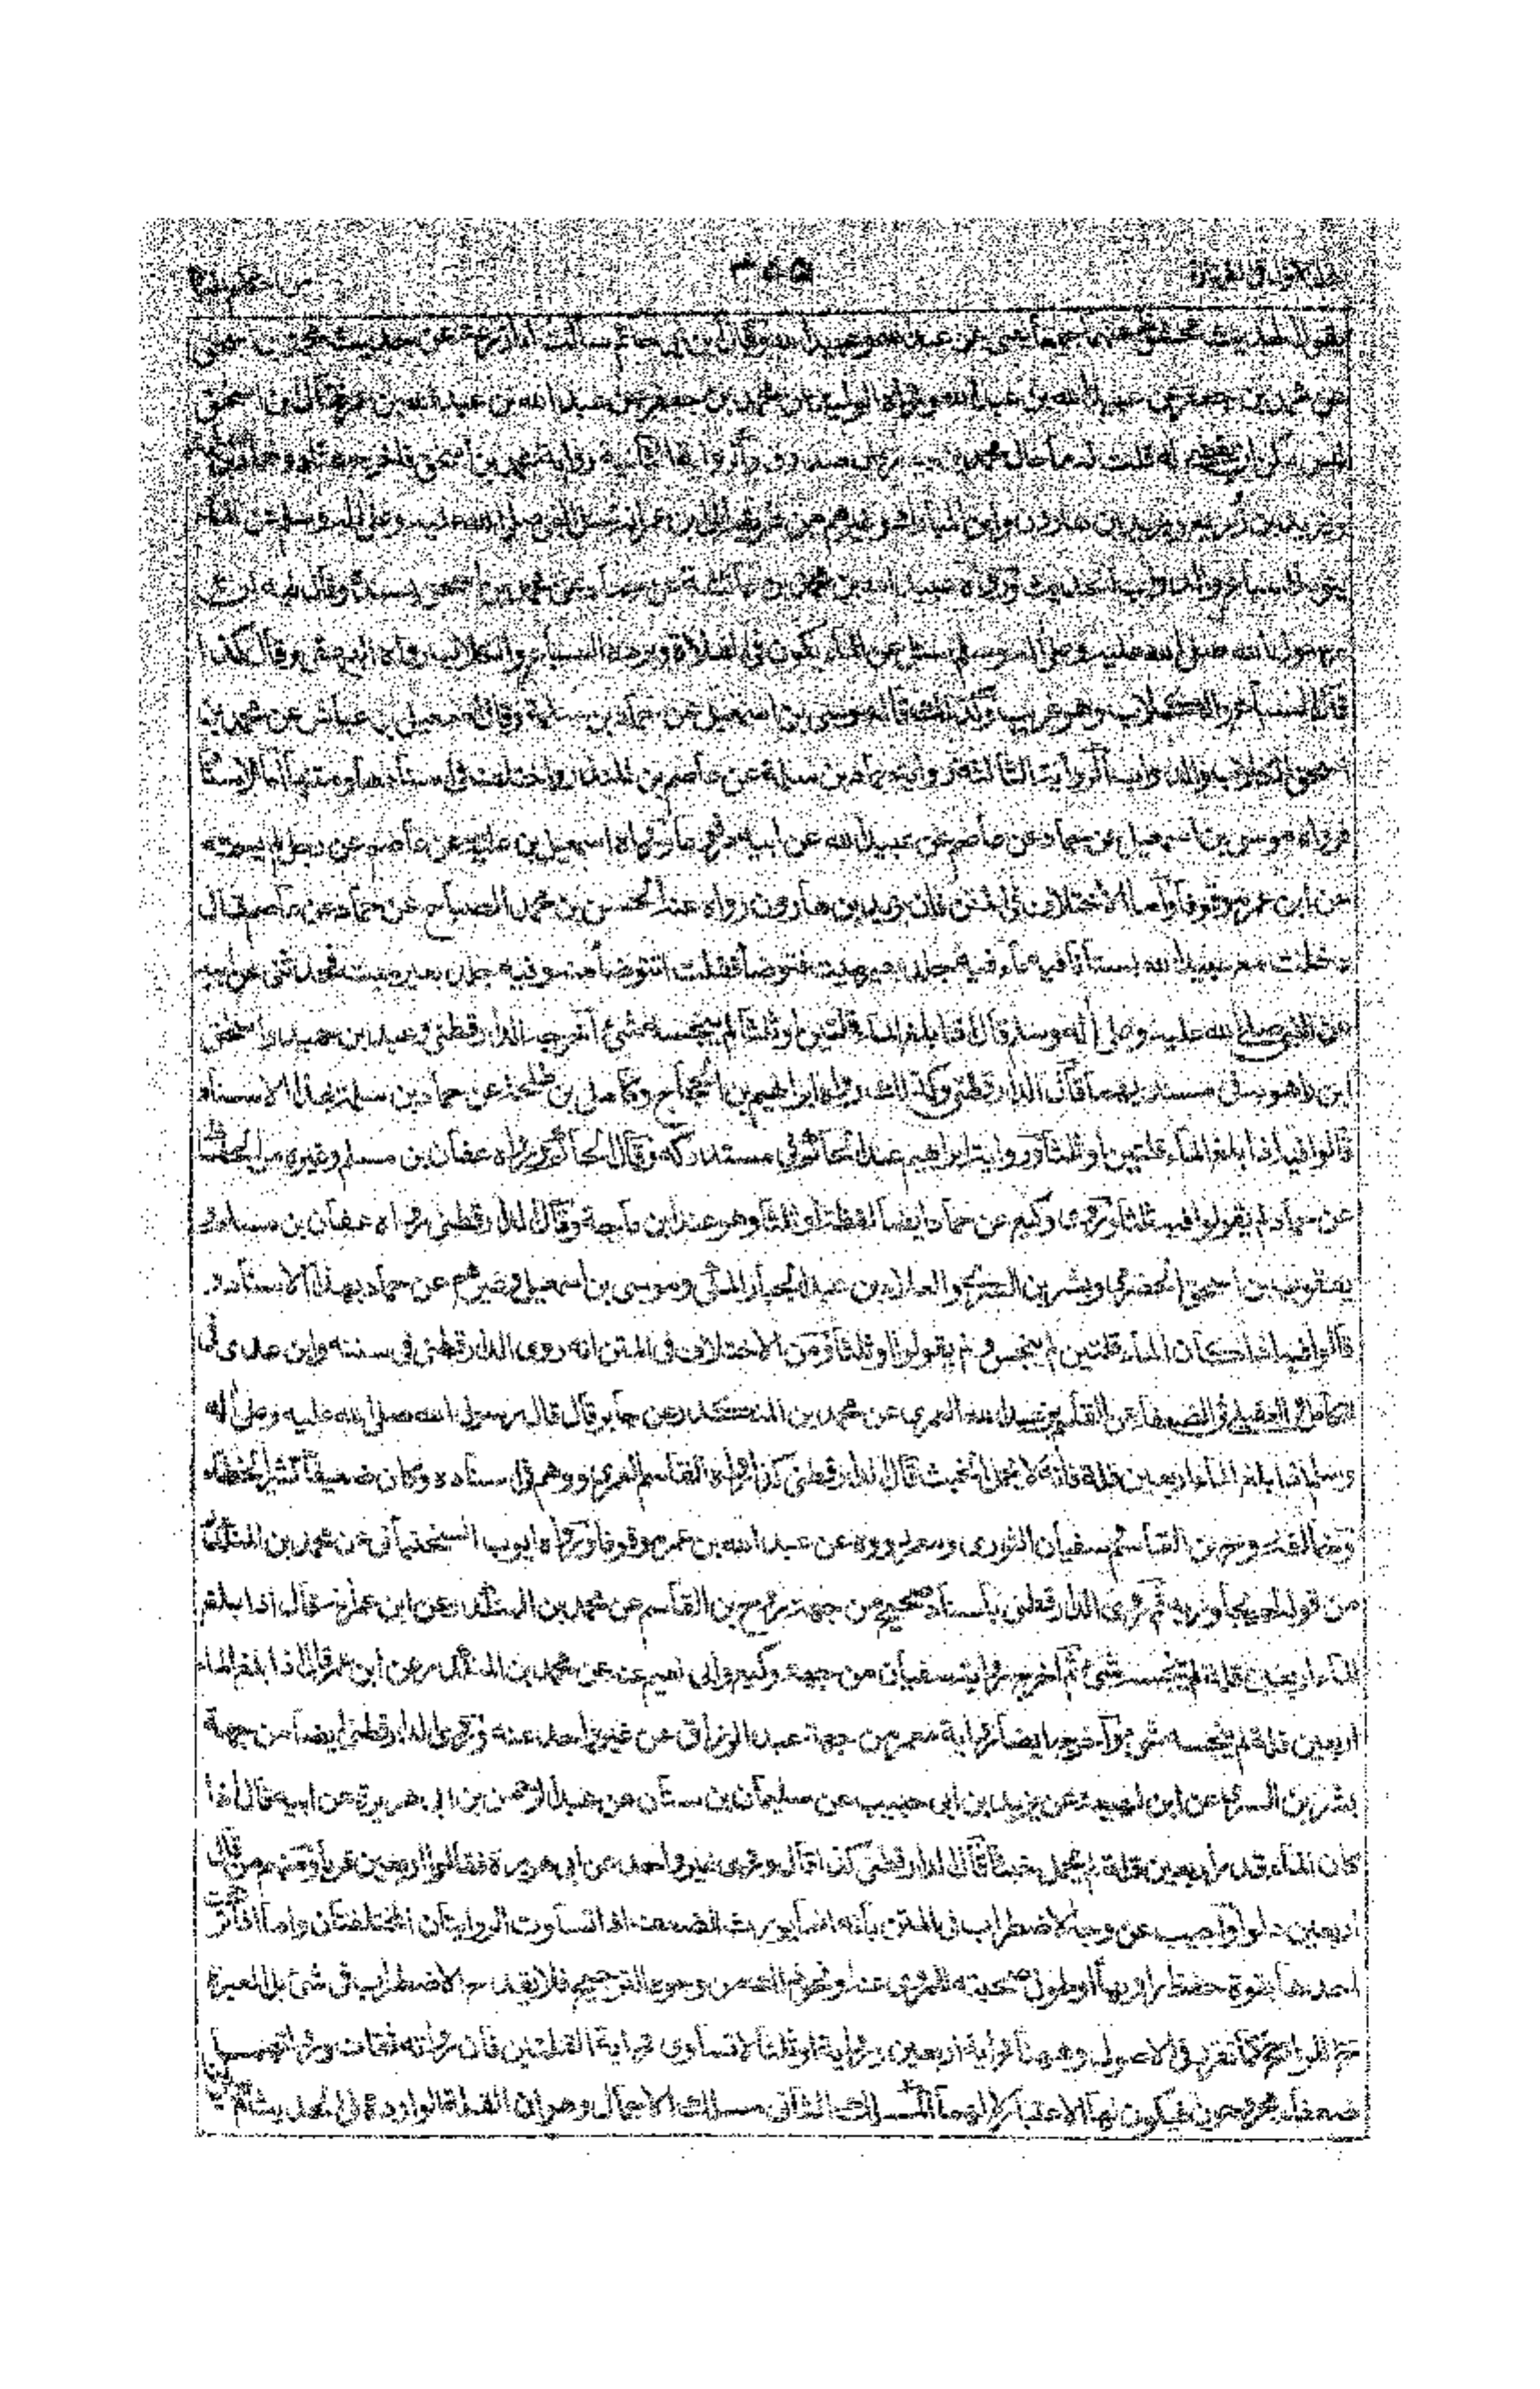 ٣٥٥
يقول الحديث محفوظ عنهما جميعا اعنى عن عبد الله وعبيد الله وقال ابن ابى حاتم سألت ابا زرعة عن حديث محمد بن اسحق
عن محمد بن جعفر عن عبيد الله بن عبد الله ورواه الوليد عن محمد بن جعفر عن عبد الله بن عبد الله بن عمر قال ابن اسحق
رواية محمد بن اسحق
ويزيد بن زريع ويزيد بن هارون وابن المبارك وغيرهم من طريق سئل النبى صلى الله عليه وعلى اله وسلم عن الماء
السباع والدواب الحديث ورواه عبيد الله بن محمد بن عائشة عن حماد عن محمد بن اسحق بسنده وقال فيه ان
رسول الله صلى الله عليه وعلى اله وسلم سئل عن الماء يكون فى الفلاة وترده السباع والكلاب رواه البيهقى وقال كذا
قال السباع والكلاب وهو غريب وكذلك قاله موسى بن اسمعيل عن حماد بن سلمة وقال اسمعيل بن عياش عن محمد بن
اسحق الكلاب والدواب الرواية الثالثة رواية حماد بن سلمة عن عاصم بن المنذر واختلف فى اسنادها ومتنها اما الاسناد
فرواه موسى بن اسمعيل عن حماد عن عاصم عن عبيد الله عن ابيه مرفوعا ورواه اسمعيل بن علية عن عاصم عن رجل لم يسمه
عن ابن عمر موقوفا واما الاختلاف فى المتن فان يزيد بن هارون رواه عنه الحسن بن محمد الصباح عن حماد عن عاصم قال
دخلت مع عبيد الله بستانا فيه ماء فيه جلد بعير ميت فتوضأ فقلت اتتوضأ منه وفيه جلد بعير ميت فحدثنى عن ابيه
عن النبى صلى الله عليه وعلى اله وسلم قال اذا بلغ الماء قلتين او ثلثا لم ينجسه شئ اخرجه الدارقطنى وعبد بن حميد واسحق
ابن راهويه فى مسنديهما قال الدارقطنى وكذلك رواه ابراهيم بن الحجاج وكامل بن طلحة عن حماد بن سلمة بهذا الاسناد
قالوا فيه اذا بلغ الماء قلتين او ثلثا ورواية ابراهيم عند الحاكم فى مستدركه وقال الحاكم ورواه عفان بن مسلم وغيره من الحفاظ
عن حماد لم يقولوا فيه ثلثا وروى وكيع عن حماد ايضا لفظة او ثلثا وهو عند ابن ماجة وقال الدارقطنى رواه عفان بن مسلم و
يعقوب بن اسحق الحضرمى وبشر بن السرى والعلاء بن عبد الجبار المكى وموسى بن اسمعيل وغيرهم عن حماد بهذا الاسناد و
قالوا فيه اذا كان الماء قلتين لم ينجس ولم يقولوا او ثلثا ومن الاختلاف فى المتن انه روى الدارقطنى فى سننه وابن عدى فى
الكامل والعقيلى فى الضعفاء عن القاسم بن عبيد الله العمرى عن محمد بن المنكدر عن جابر قال قال رسول الله صلى الله عليه وعلى اله
وسلم اذا بلغ الماء اربعين قلة فانه لا يحمل الخبث قال الدارقطنى كذا رواه القاسم العمرى ووهم فى اسناده وكان ضعيفا كثير الخطاء
وخالفه روح بن القاسم وسفيان الثورى ومعمر رووه عن عبد الله بن عمر موقوفا ورواه ايوب السختيانى عن محمد بن المنكدر
من قوله لم يجاوز به ثم روى الدارقطنى باسناد صحيح من جهة روح بن القاسم عن محمد بن المنكدر عن ابن عمر قال اذا بلغ
الماء اربعين قلة لم ينجسه شئ ثم اخرج رواية سفيان من جهة وكيع وابى نعيم عنه عن محمد بن المنكدر عن ابن عمر قال اذا بلغ الماء
اربعين قلة لم ينجسه شئ واخرج ايضا رواية معمر من جهة عبد الرزاق عن غير واحد عنه وروى الدارقطنى ايضا من جهة
بشر بن السرى عن ابن لهيعة عن يزيد بن ابى حبيب عن سليمان بن سنان عن عبد الرحمن بن ابى هريرة عن ابيه قال اذا
كان الماء قدر اربعين قلة لم يحمل خبثا قال الدارقطنى كذا قال وروى غير واحد عن ابى هريرة فقالوا اربعين غربا ومنهم من قال
اربعين دلوا واجيب عن وجه الاضطراب فى المتن بانه انما يورث الضعف اذا تساوت الروايتان المختلفتان واما اذا ترجحت
احدهما بقوة حفظ راويها او طول صحبته للمروى عنه او نحو ذلك من وجوه الترجيح فلا يقدح الاضطراب فى شئ بل العبرة
للراجح كما تقرر فى الاصول وههنا رواية اربعين ورواية او ثلثا لا تساوى رواية القلتين فان رواته ثقات ورواتهما
ضعفاء مجروحون فيكون لها الاعتبار لا لهما المسلك الثانى مسلك الاجمال وهو ان القلة الواردة فى الحديث